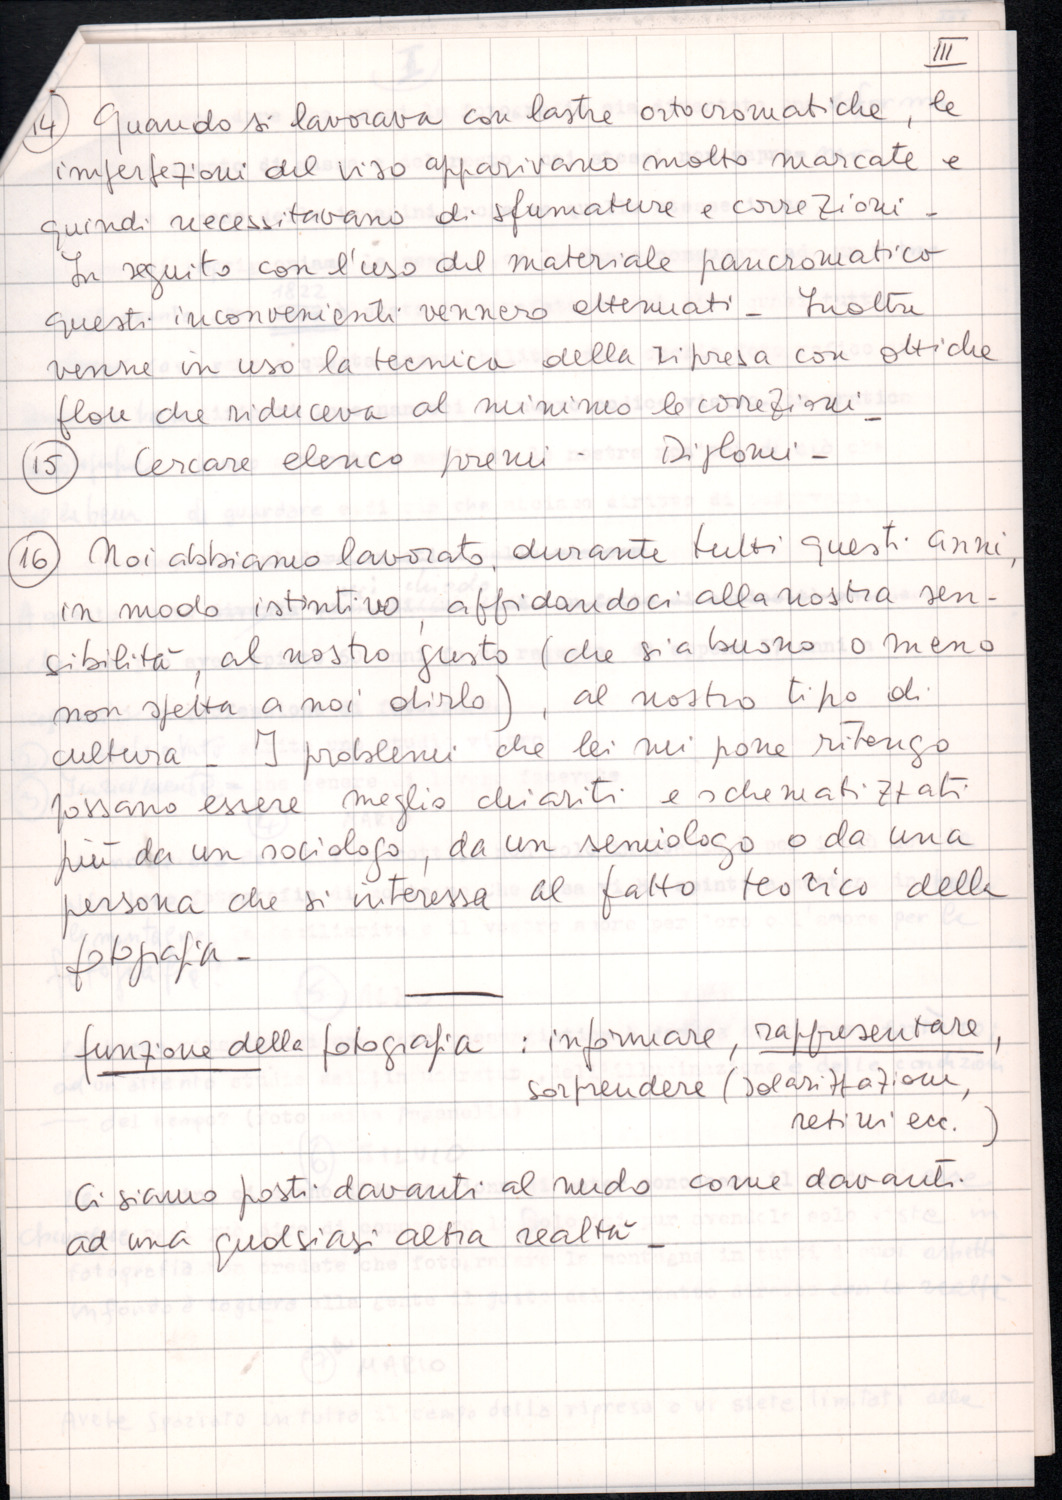 III
14 Quando si lavorava con lastre ortocromatiche, le
imperfezioni del viso apparivano molto marcate e
quindi necessitavano di sfumature e correzioni -
In seguito con l'uso del materiale pancromatico
questi inconvenienti vennero attenuati - Inoltre
venne in uso la tecnica della ripresa con ottiche
flou che riduceva al minimo le correzioni -
15 Cercare elenco premi - Diplomi -
16 Noi abbiamo lavorato, durante tutti questi anni,
in modo istintivo, affidandoci alla nostra sen-
sibilità, al nostro gusto (che sia buono o meno
non spetta a noi dirlo), al nostro tipo di
cultura - I problemi che lei mi pone ritengo
possano essere meglio chiariti e schematizzati
più da un sociologo, da un semiologo o da una
persona che si interessa al fatto teorico della
fotografia -
funzione della fotografia : informare, rappresentare,
sorprendere (solarizzazione,
retini ecc.)
Ci siamo posti davanti al nudo come davanti
ad una qualsiasi altra realtà -